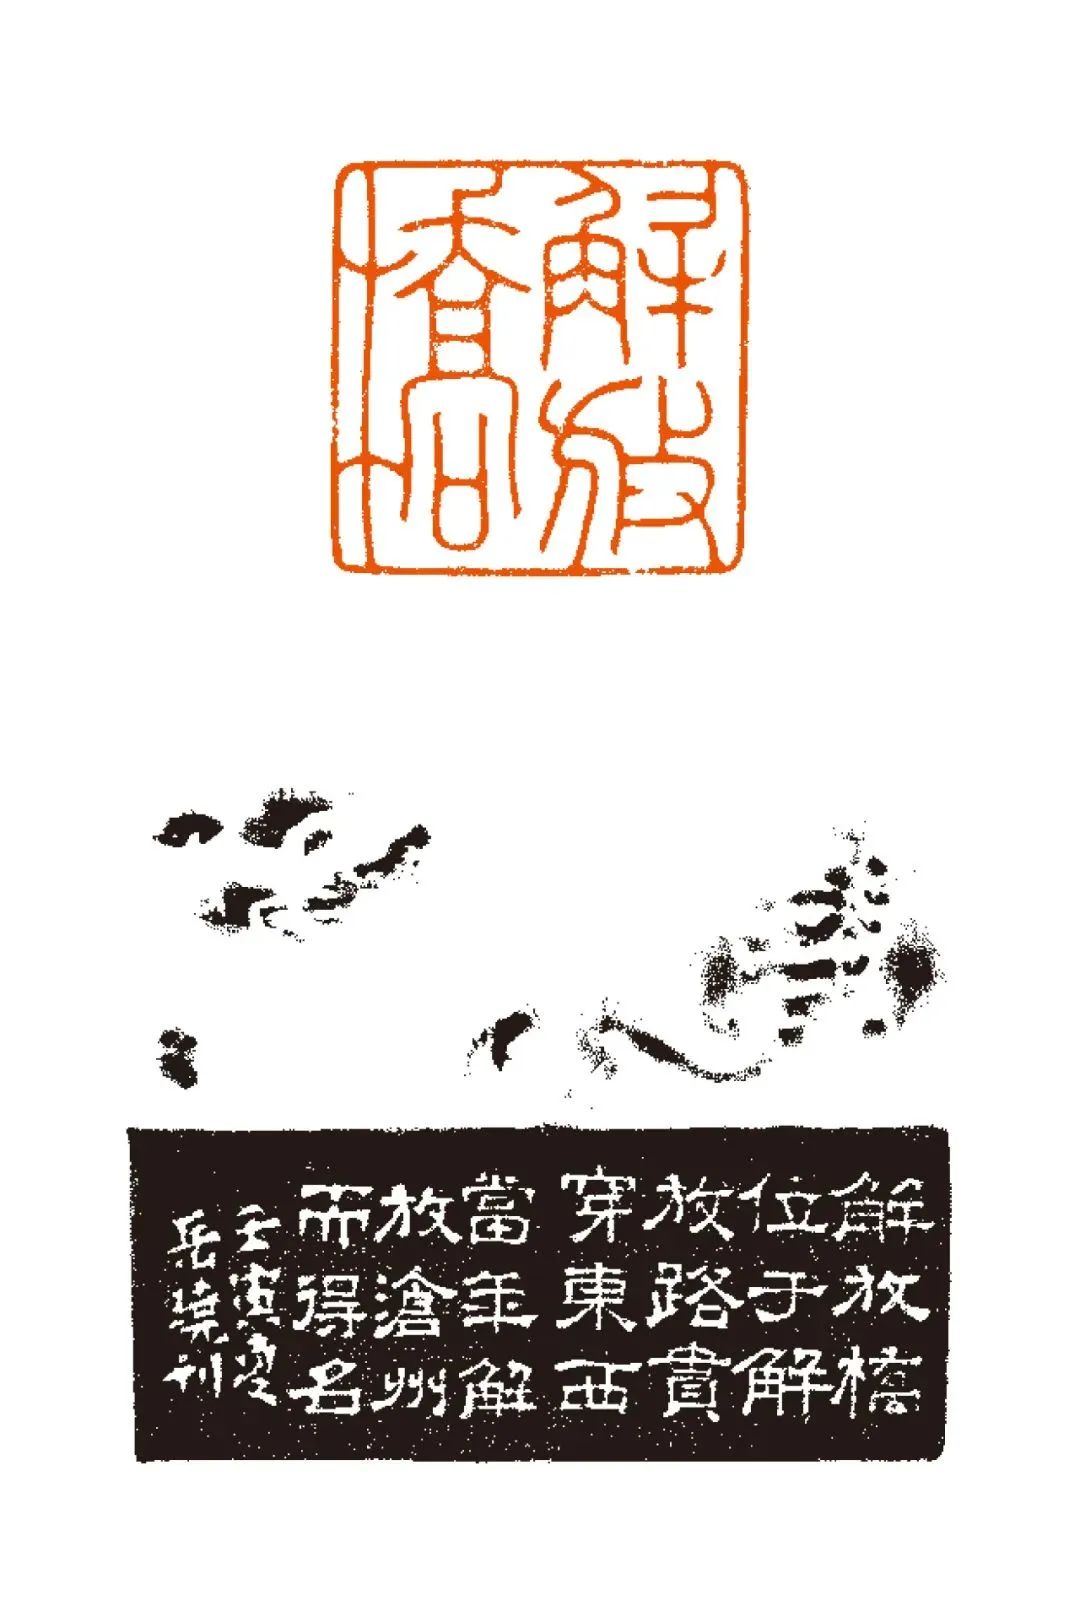 解放
橋
解放橋
位于解
放路貫
穿東西
當年解
放滄州
而得名
壬寅夏
岳刊